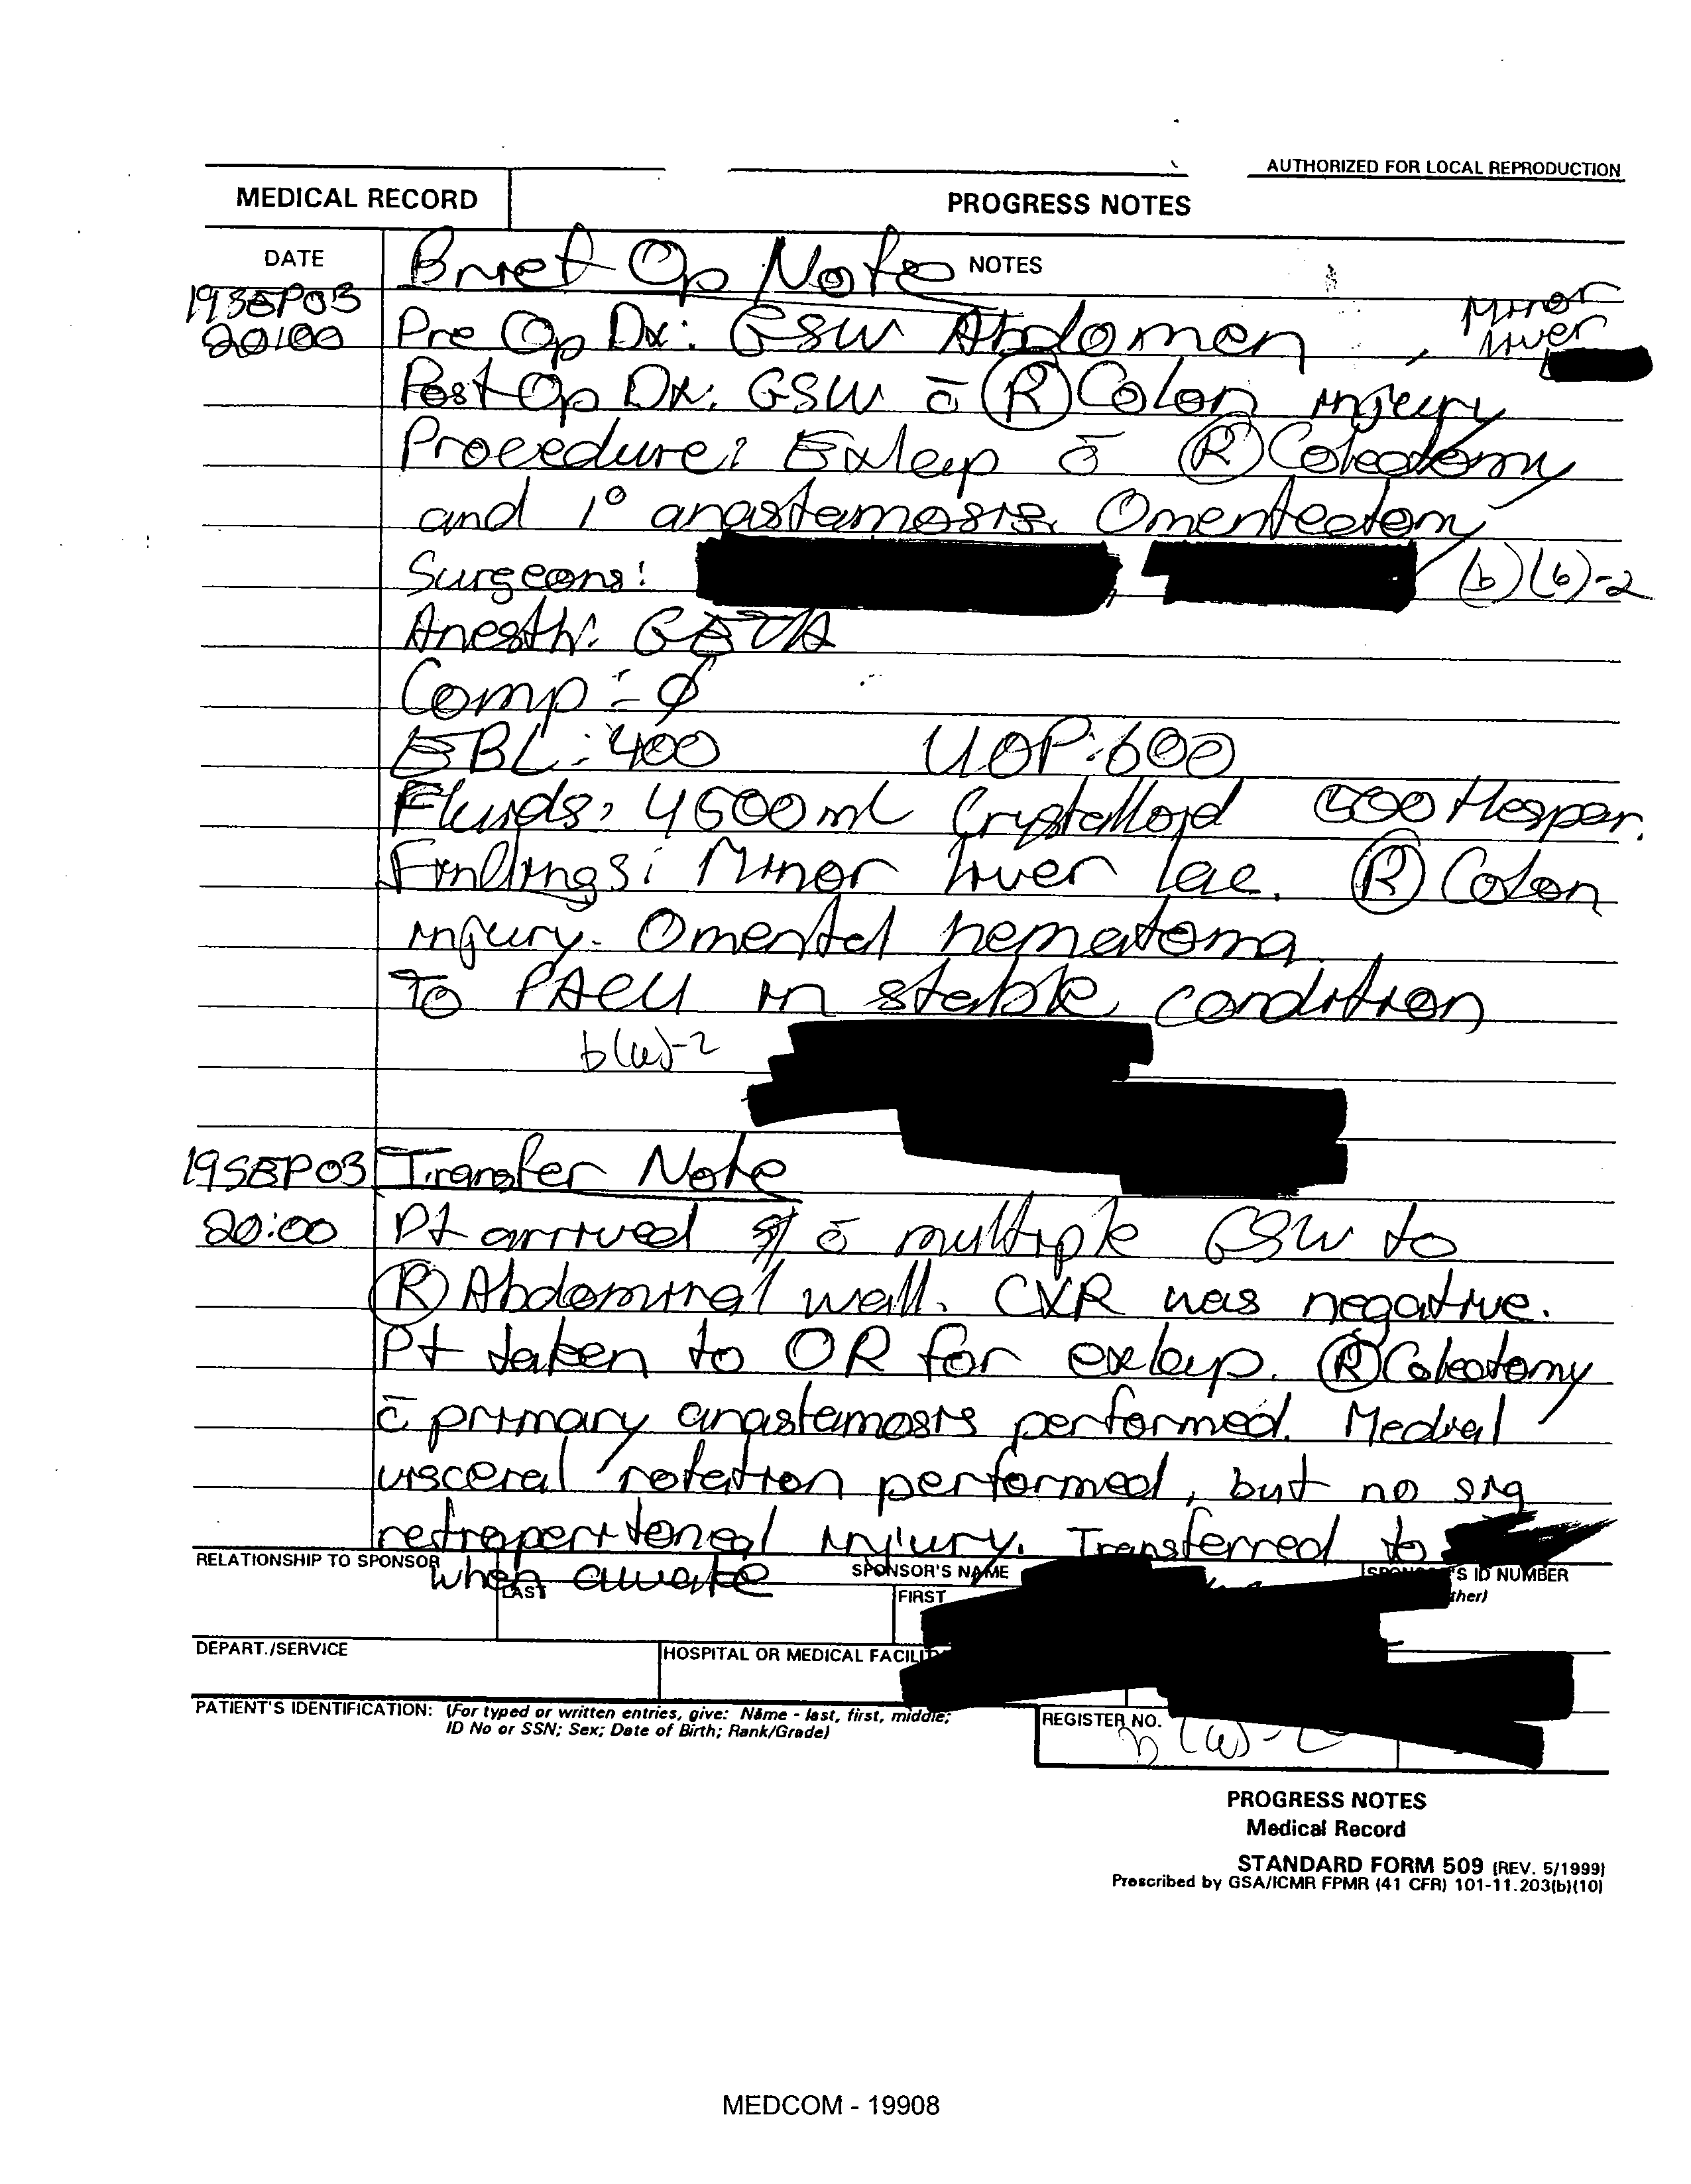 AUTHORIZED FOR LOCAL REPRODUCTION
MEDICAL RECORD
PROGRESS NOTES
DATE
NOTES
Brief Op Note
19SEP03
20:00
Pre Op Dx: GSW Abdomen
, Minor
liver
Post Op Dx: GSW c̄ Ⓡ Colon injury
Procedure: Exlap c̄ Ⓡ Colectomy
and 1° anastamosis. Omentectomy
Surgeons:
(b)(6)-2
Anesth: GETA
Comp: ∅
EBL: 400 UOP: 600
Fluids: 4500ml Crystalloid 500 Hespan.
Findings: Minor liver lac. Ⓡ Colon
injury. Omental hematoma
To PACU in stable condition
b(6)-2
19SEP03 Transfer Note
20:00 Pt arrived c̄ multiple GSW to
Ⓡ Abdominal wall. CXR was negative.
Pt taken to OR for exlap. Ⓡ Colectomy
c̄ primary anastamosis performed. Medial
visceral rotation performed, but no sig
retroperitoneal injury. Transferred to
when awake
RELATIONSHIP TO SPONSOR
SPONSOR'S NAME
'S ID NUMBER
LAST
FIRST
ther)
DEPART./SERVICE
HOSPITAL OR MEDICAL FACILITY
PATIENT'S IDENTIFICATION: (For typed or written entries, give: Name - last, first, middle;
ID No or SSN; Sex; Date of Birth; Rank/Grade)
REGISTER NO.
PROGRESS NOTES
Medical Record
STANDARD FORM 509 (REV. 5/1999)
Prescribed by GSA/ICMR FPMR (41 CFR) 101-11.203(b)(10)
MEDCOM - 19908